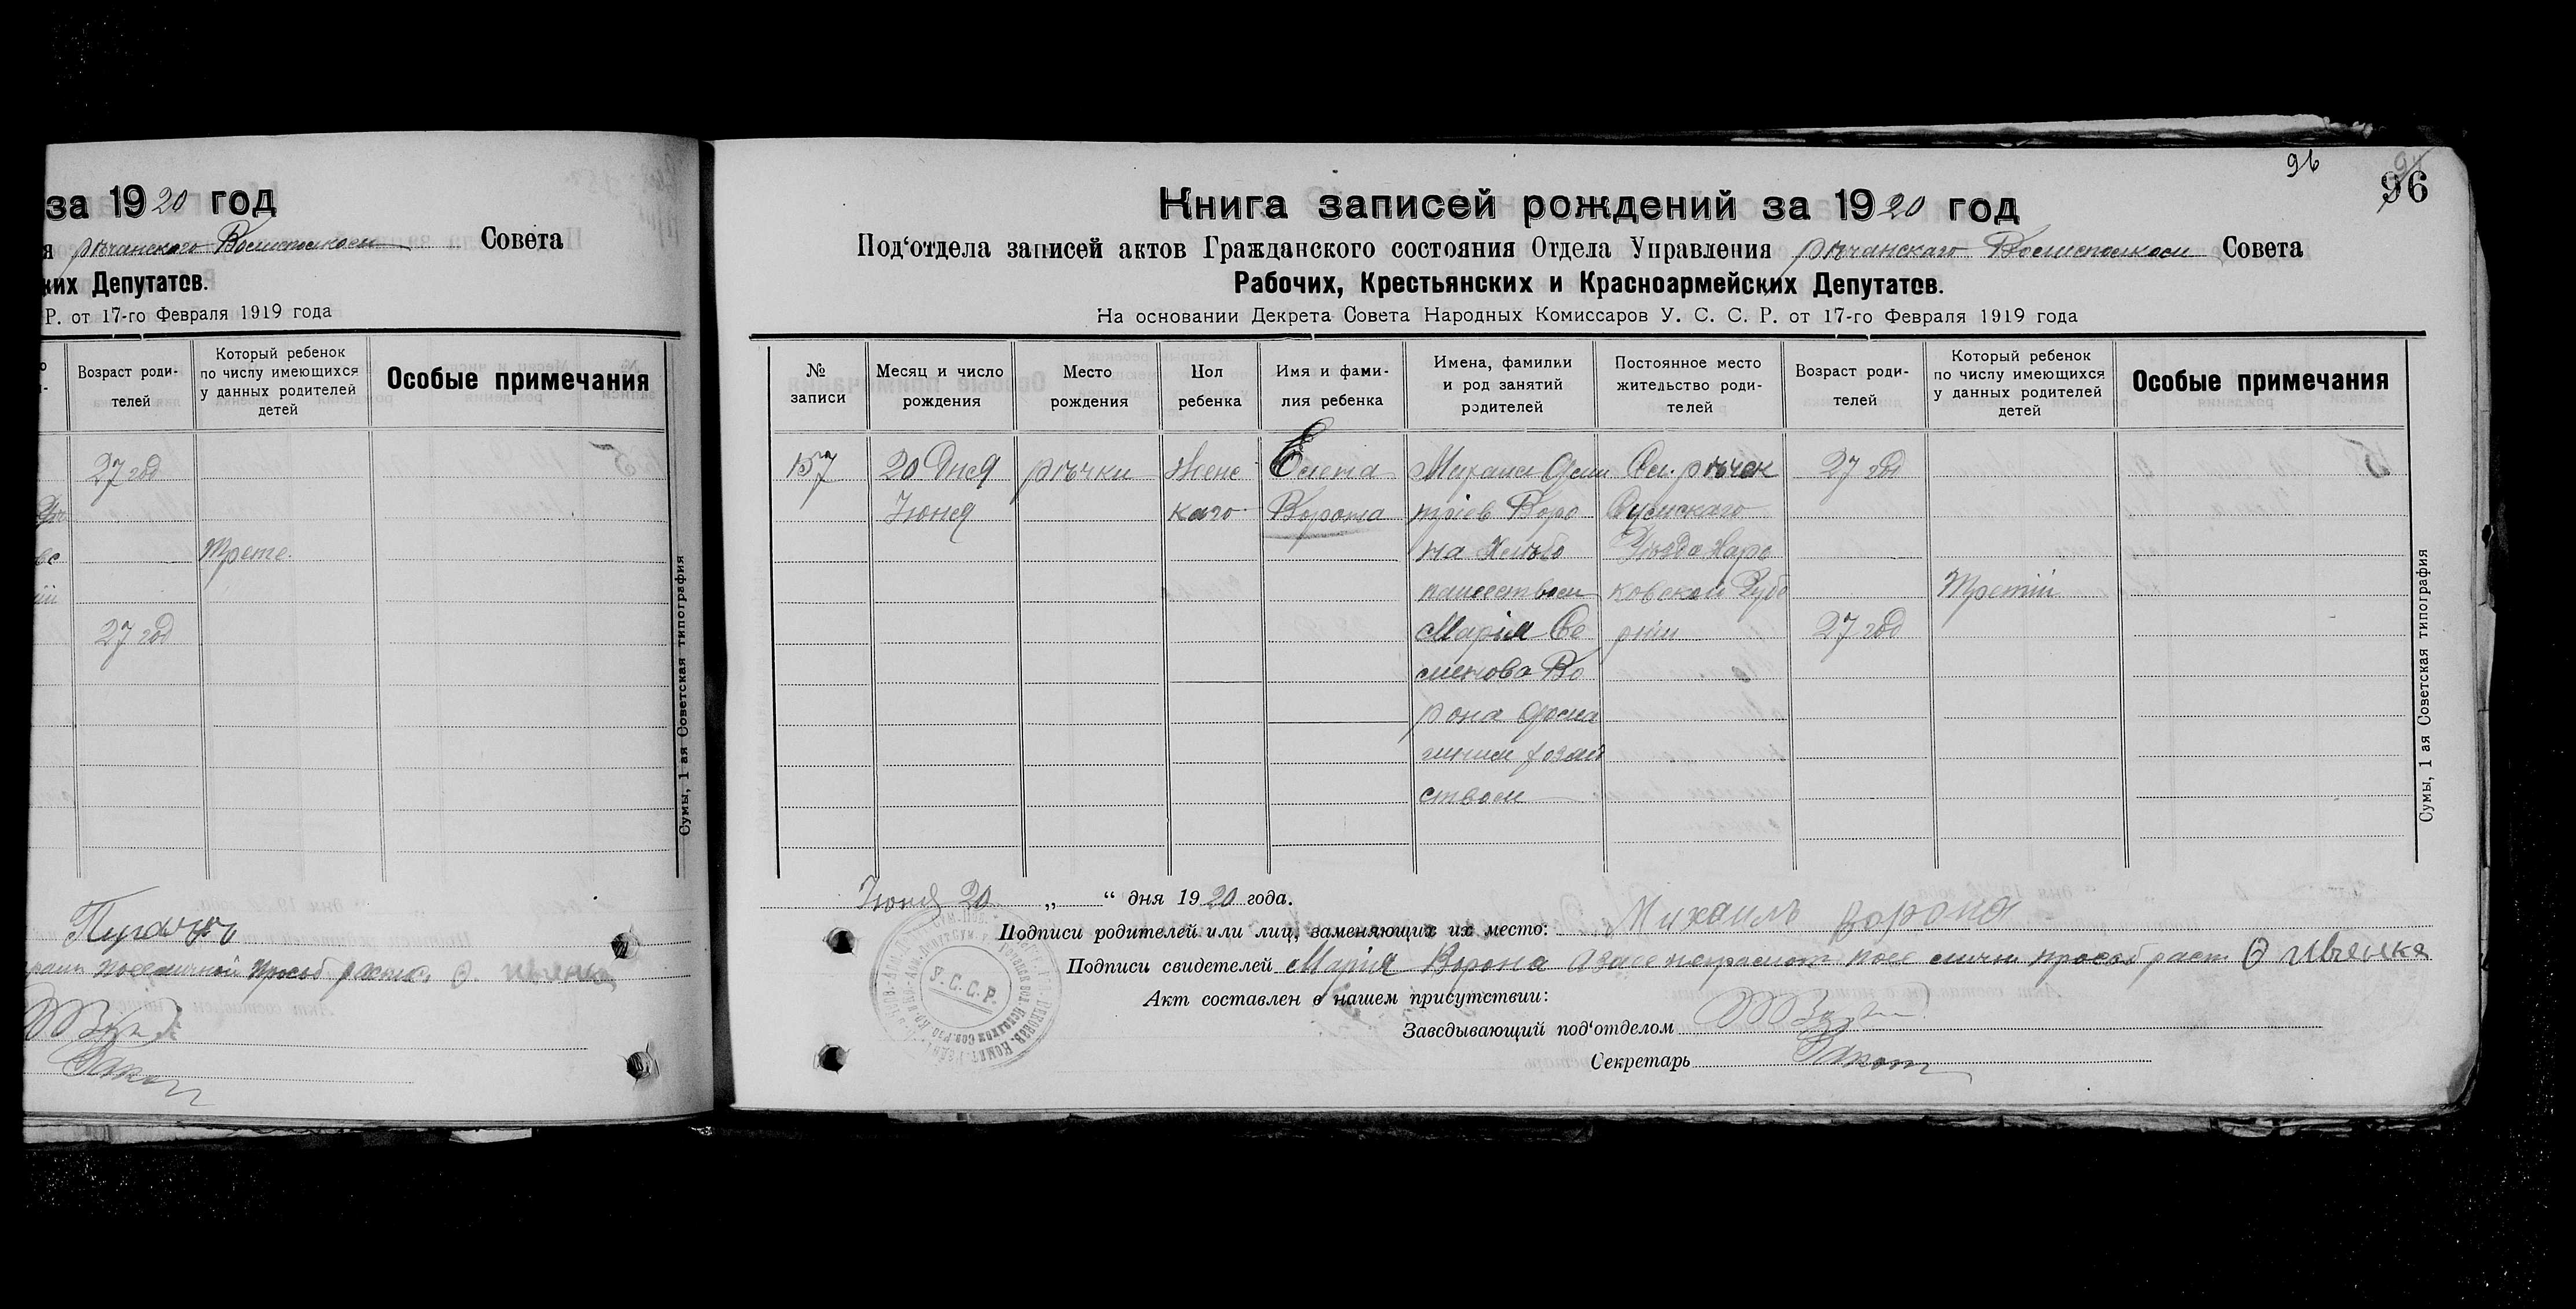 за 1920 год
Совета
ких Депутатов.
Р. от 17-го Февраля 1919 года
Возраст роди-
телей
Который ребенок
по числу имеющихся
у данных родителей
детей
Особые примечания
27 год
Трете
27 год
Сумы, 1 ая Советская типография
96
96
Книга записей рождений за 1920 год
Под'отдела записей актов Гражданского состояния Отдела Управления рѣчанскаго Волисполкома Совета
Рабочих, Крестьянских и Красноармейских Депутатов.
На основании Декрета Совета Народных Комиссаров У. С. С. Р. от 17-го Февраля 1919 года
№
записи
Месяц и число
рождения
Место
рождения
Пол
ребенка
Имя и фами-
лия ребенка
Имена, фамилии
и род занятий
родителей
Постоянное место
жительство роди-
телей
Возраст роди-
телей
Который ребенок
по числу имеющихся
у данных родителей
детей
Особые примечания
157
20 Дня
Іюня
рѣчки
Женс
каго
Елена
Ворона
Михаил Дми
тріев Воро
на Хлѣбо
пашеством
Марія Се
менова Во
рона Дома
шним хозяй
ством
Сл. рѣчек
Сумскаго
Уѣзда Харь
ковской Губе
рніи
27 год
27 год
Третій
Сумы, 1 ая Советская типография
Іюня 20 „ “ дня 1920 года.
Подписи родителей или лиц, заменяющих их место: Михаилъ Ворона
Подписи свидетелей Марія Ворона
Акт составлен в нашем присутствии:
Заведывающий под'отделом
Секретарь
У.С.С.Р.